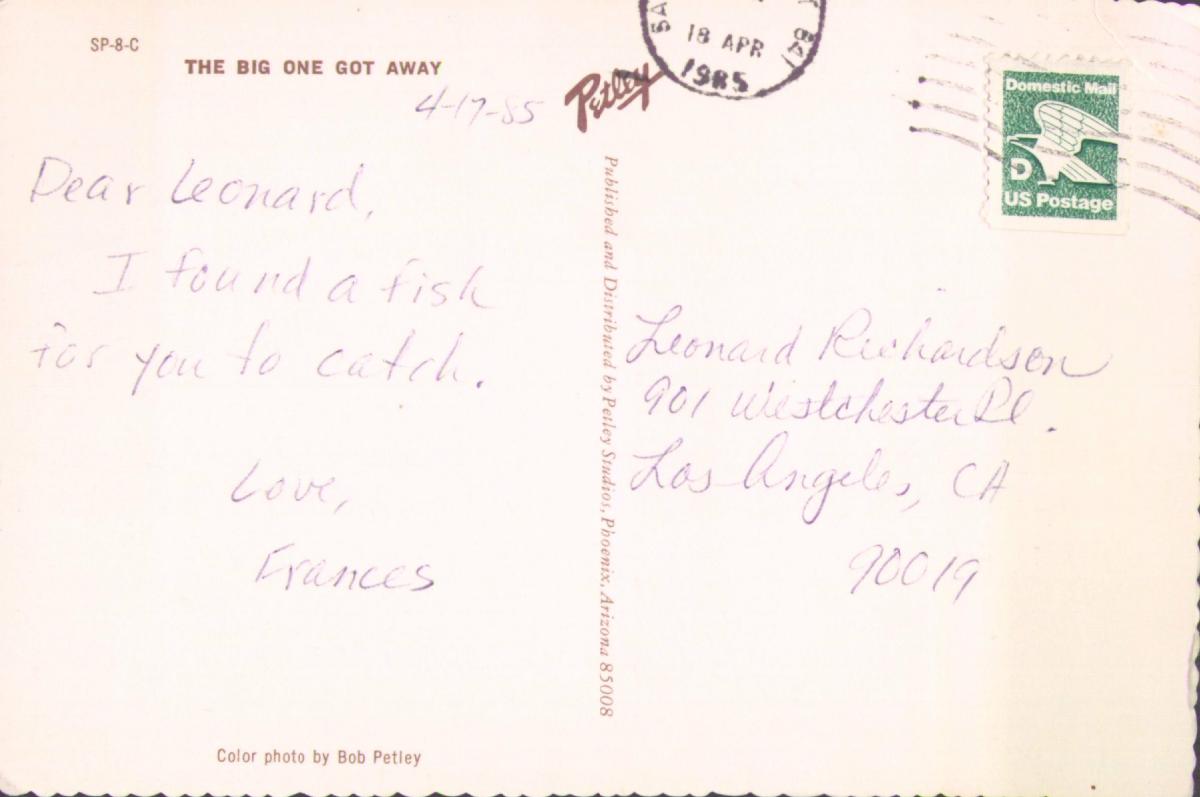 SP-8-C
THE BIG ONE GOT AWAY
4-17-85
Dear Leonard,
I found a fish
for you to catch.
Love,
Frances
Color photo by Bob Petley
Petley
Published and Distributed by Petley Studios, Phoenix, Arizona 85008
SA
841
18 APR
1985
Domestic Mail
D
US Postage
Leonard Richardson
901 Westchester Pl.
Los Angeles, CA
90019